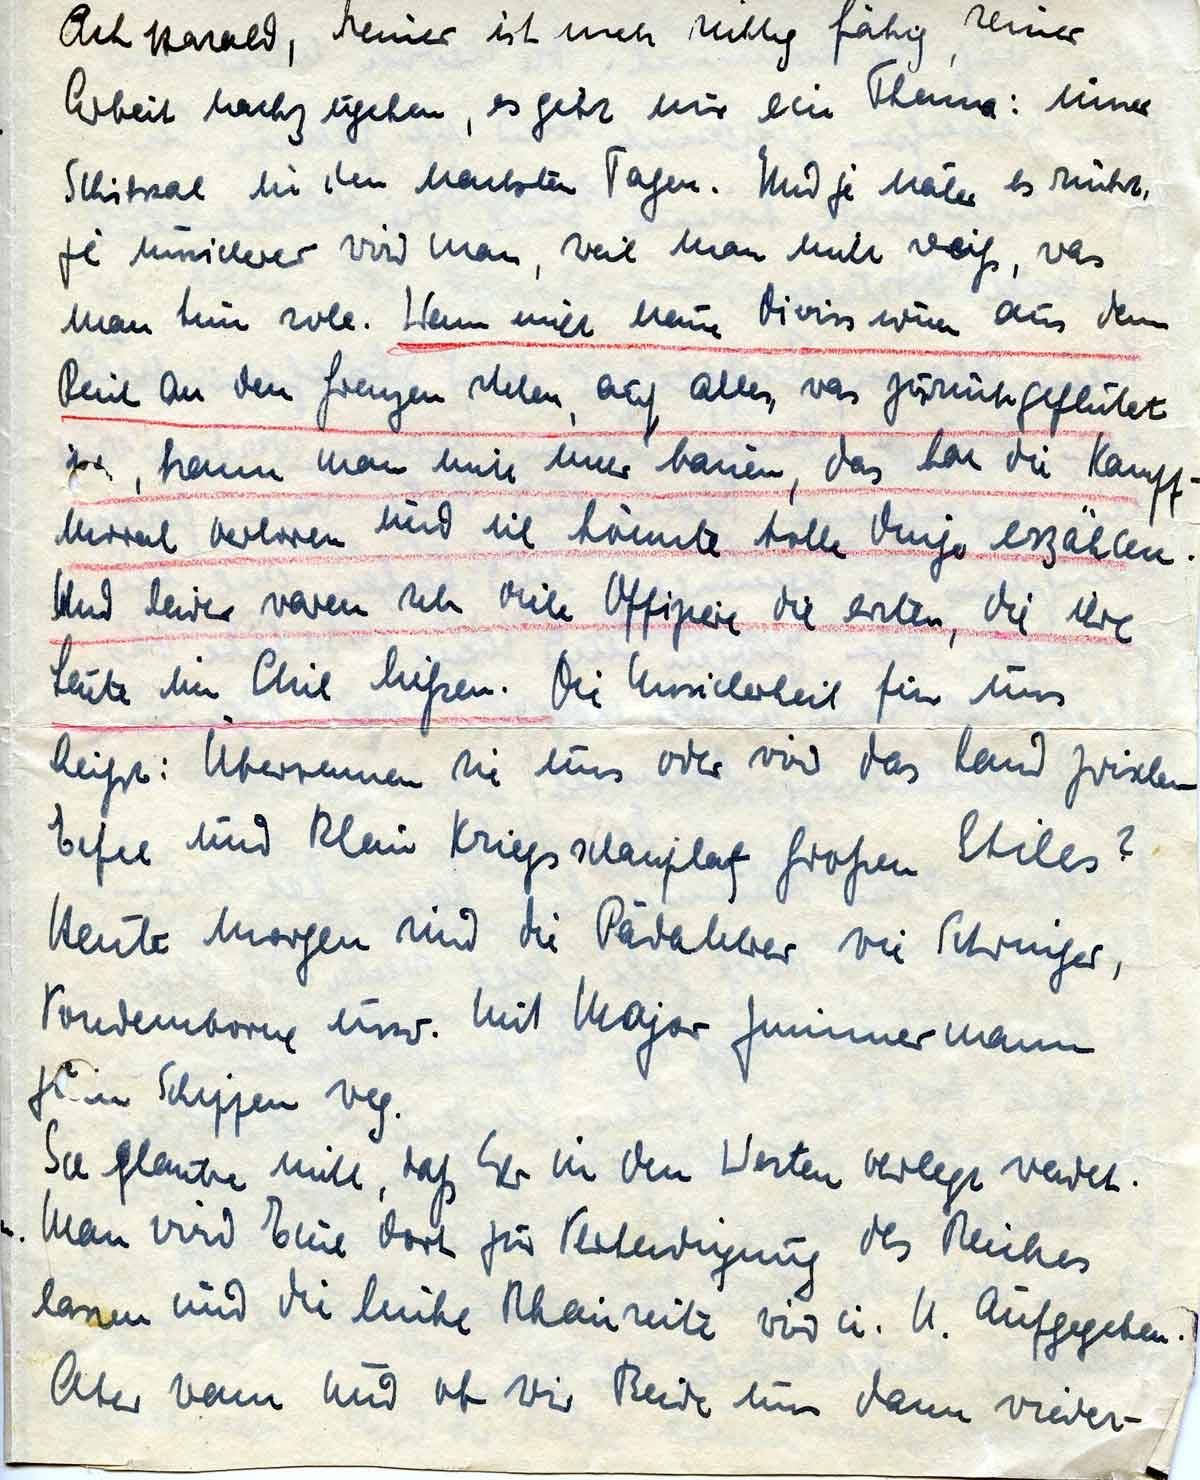 Ach Harald, keiner ist mehr richtig fähig, seiner
Arbeit nachzugehen, es gibt nur ein Thema: unser
Schicksal in den nächsten Tagen. Und je näher es rückt,
je unsicherer wird man, weil man nicht weiß, was
man tun soll. Wenn nicht neue Divisionen aus dem
Reich an den Grenzen stehen, auf alles, was zurückgeflutet
ist, kann man nicht mehr bauen, das hat die Kampf-
moral verloren und ich könnte tolle Dinge erzählen.
Und leider waren sehr viele Offiziere die ersten, die ihre
Leute im Stich ließen. Die Unsicherheit für uns
heißt: Überrennen sie uns oder wird das Land zwischen
Eifel und Rhein Kriegsschauplatz großen Stiles?
Heute Morgen sind die Schwinger,
Vondemborne usw. mit Major Zimmermann
zum Schippen weg.
Ich glaube nicht, daß Ihr in den Westen verlegt werdet.
Man wird Euch dort zur Verteidigung des Reiches
lassen und die linke Rheinseite wird u. U. Aufgegeben.
Aber wann und ob wir Beide uns dann wieder-